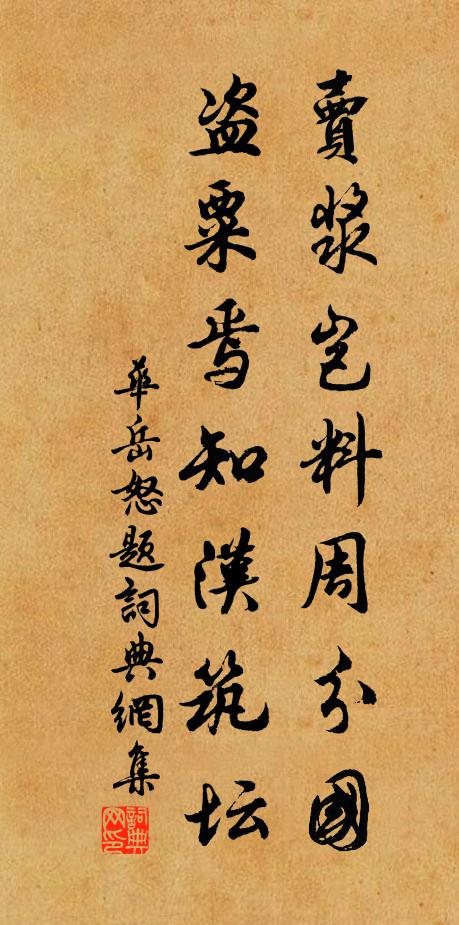 賣漿豈料周分國
盗粟焉知漢筑坛
華岳怒题詞典網集
詞典网印